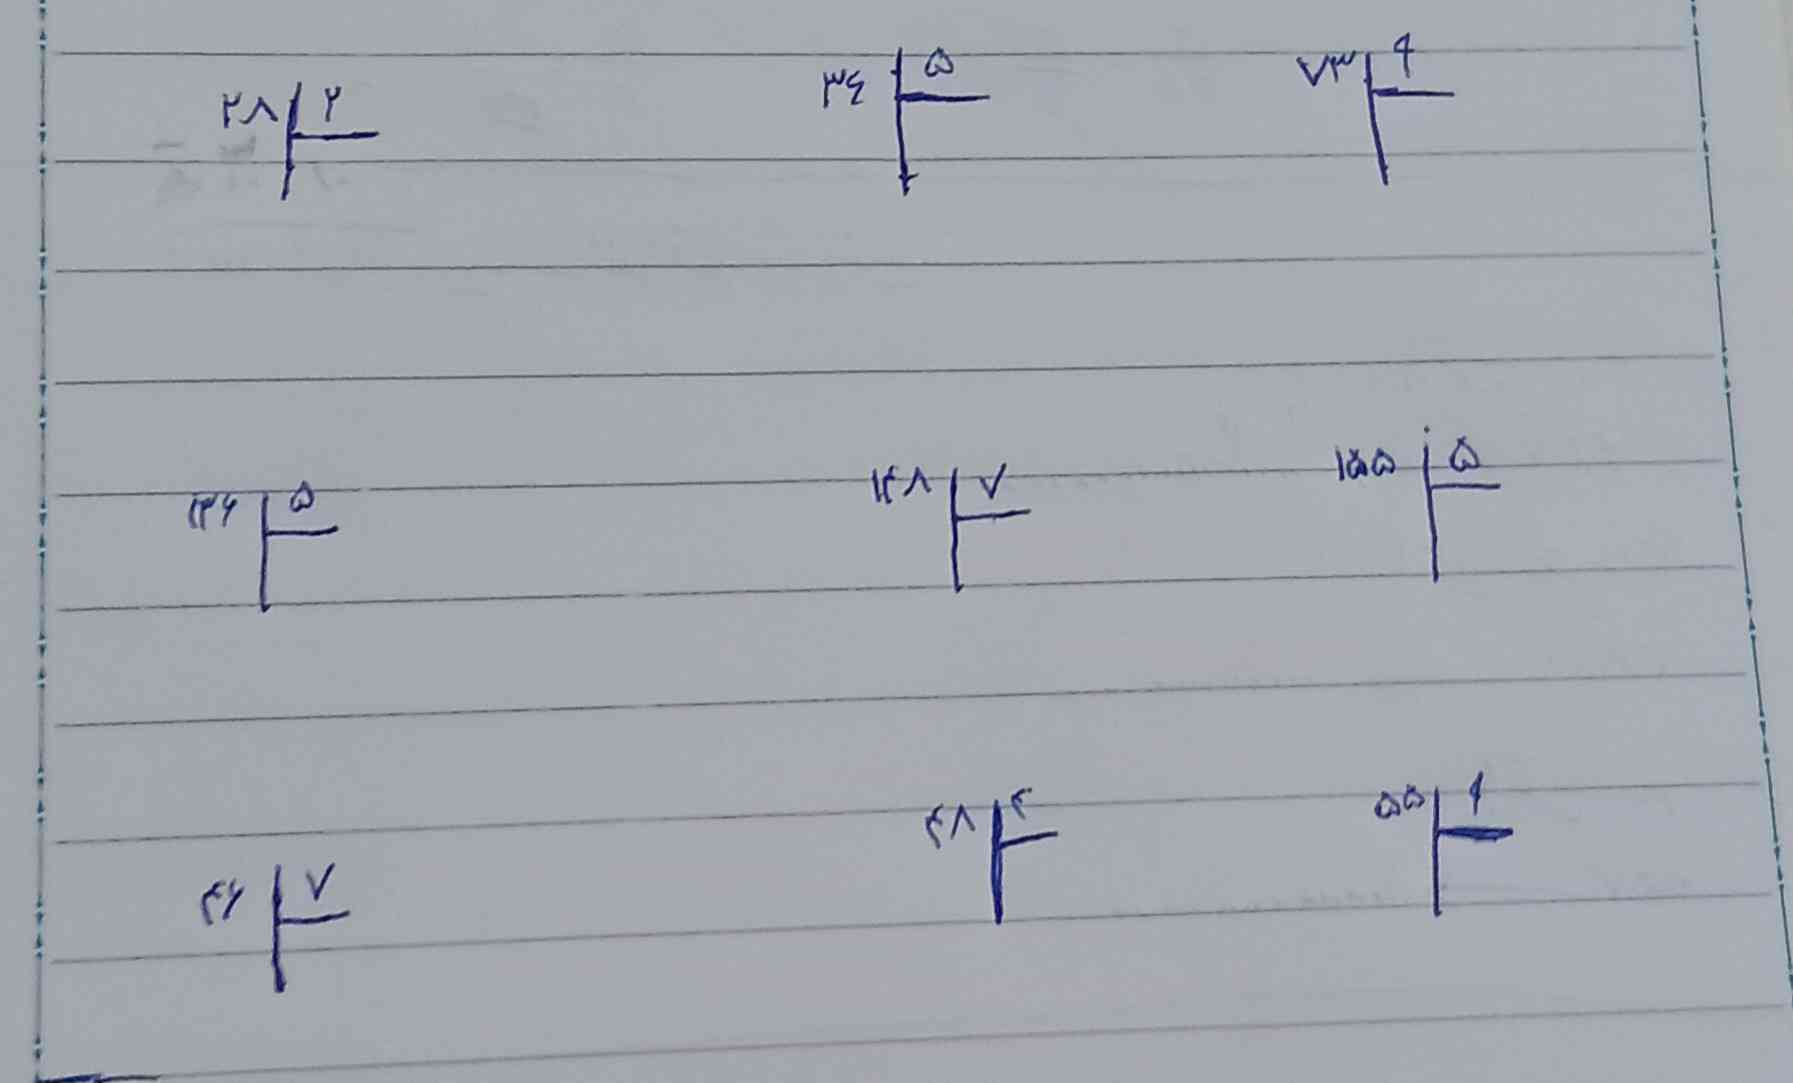 ۲۸ ۲ ۳٤ ۵ ۷۳ ۹
۱۳۶ ۵ ۱۴۸ ۷ ۱۵۵ ۵
۴۶ ۷ ۴۸ ۴ ۵۵ ۹